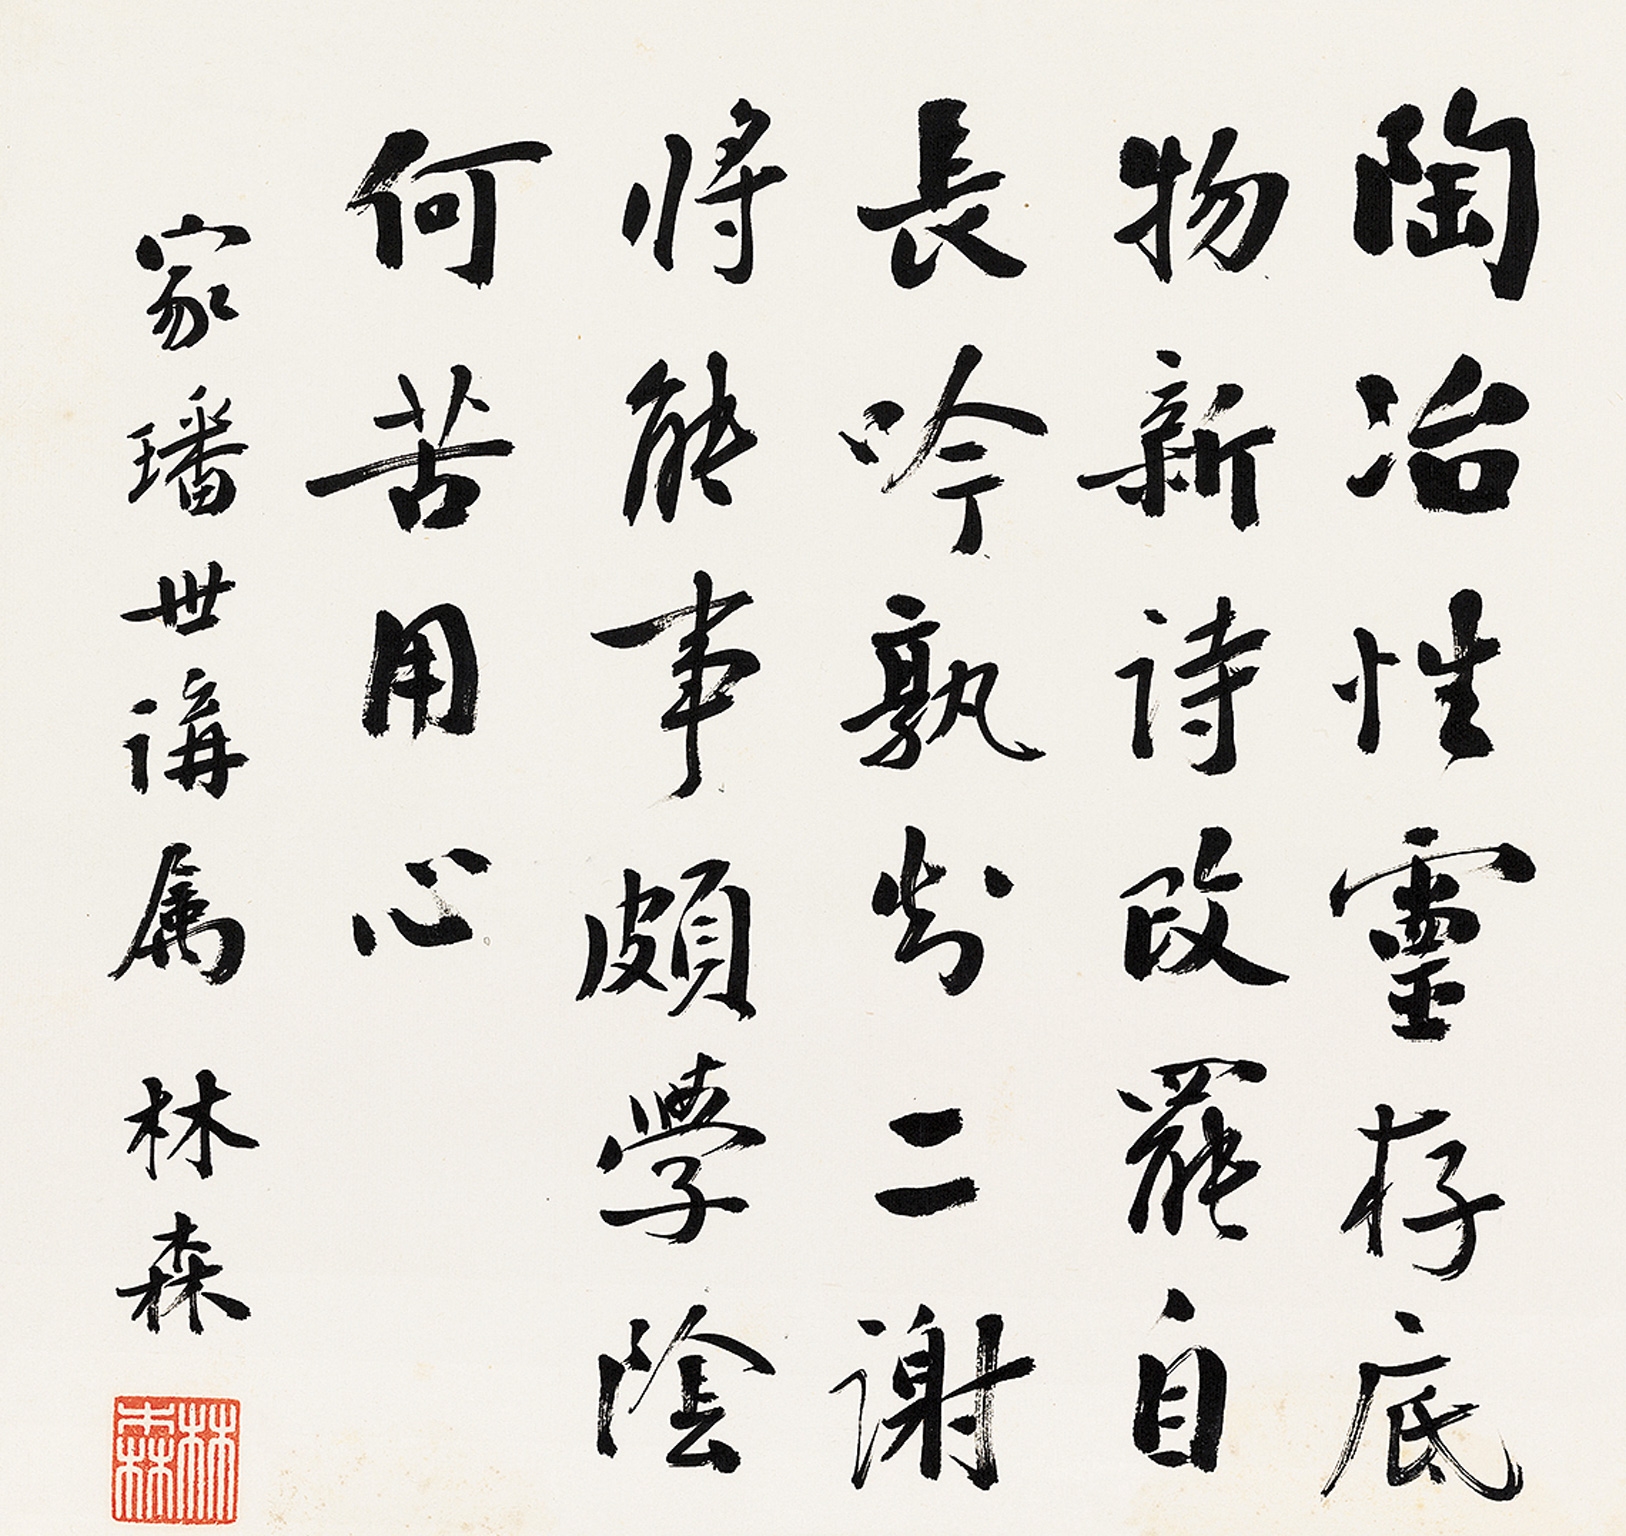 陶冶性靈存底
物新詩改罷自
長吟孰知二謝
將能事頗學陰
何苦用心
家璠世講属 林森
林森